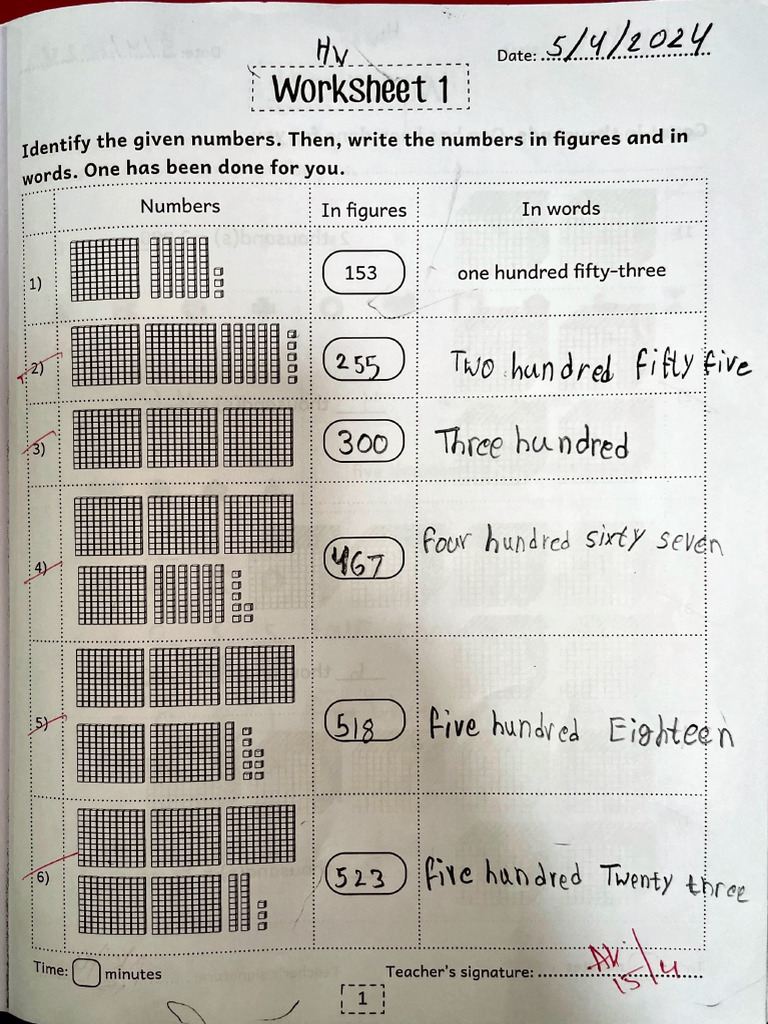 HW
Date: 5/4/2024
Worksheet 1
Identify the given numbers. Then, write the numbers in figures and in
words. One has been done for you.
Numbers In figures In words
1) 153 one hundred fifty-three
2) 255 Two hundred fifty five
3) 300 Three hundred
4) 467 four hundred sixty seven
5) 518 five hundred Eighteen
6) 523 five hundred Twenty three
Time: minutes Teacher's signature: 15/4
1